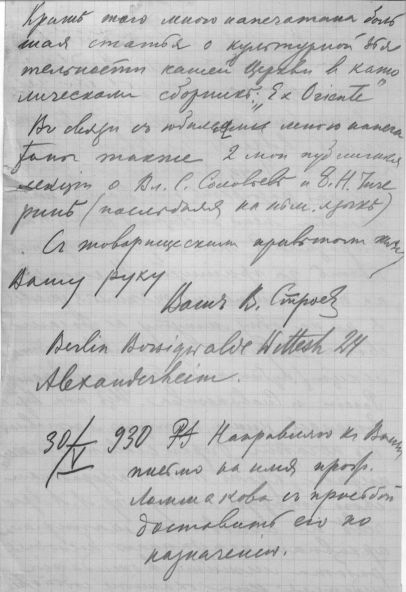 Кромѣ того мною напечатана боль
шая статья о культурной дѣя
тельности нашей Церкви въ като
лическомъ сборникѣ: "Ex Oriente"
Въ связи съ юбилеями мною напеча
таны также 2 мои публичныя
лекціи о Вл. С. Соловьевѣ и Б. Н. Чиче
ринѣ (последняя на нѣм. языкѣ)
Съ товарищескимъ привѣтомъ жму
Вашу руку
Вашъ В. Строев
Berlin Borsigwalde Wittestr 24
Alexanderheim.
30/V 930 PS Направляю къ Вамъ
письмо на имя проф.
съ просьбой
доставить его по
назначенію.